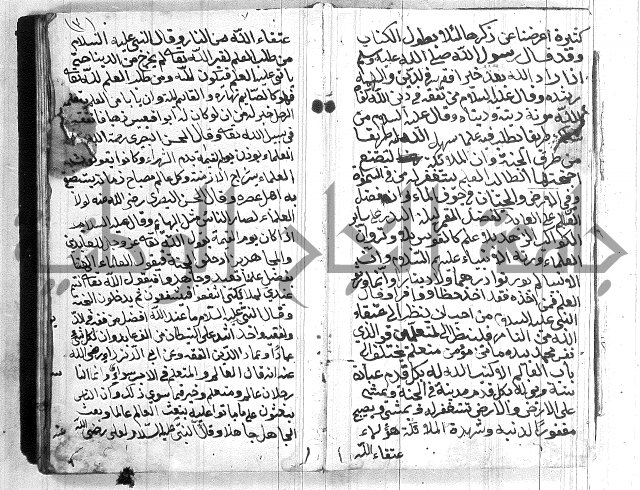 كثيرة اعرضنا عن ذكرها لئلا يطول الكتاب
وقد قال رسول الله صلى الله عليه وسلم
اذا اراد الله بعبد خيرا فقهه في الدين والهمه
رشده وقال عليه السلام من تفقه في دين الله كفاه
الله مؤنة دنيته ودنياه وقال عليه السلام من
طريقا يطلب فيه علما سهل الله له طريقا
من طرق الجنة وان الملائكة لتضع
اجنحتها لطالب العلم يستغفر له من في السموات
ومن في الارض والحيتان في جوف الماء وان فضل
العالم على العابد كفضل القمر ليلة البدر على سائر
الكواكب
العلماء ورثة الانبياء عليهم السلام وان
الانبيا لم يورثوا درهما ولا دينارا وانما ورثوا
العلم فمن اخذه فقد اخذ بحظ وافر وقال
النبي عليه السلام من احب ان ينظر الى عتقاء
الله من النار فلينظر الى المتعلمين فو الذي
نفس محمد بيده ما من مؤمن متعلم يختلف الى
باب العالم الا وكتب الله له بكل قدم عبادة
سنة وبنى له بكل قدم مدينة في الجنة ويمشي
على الارض والارض تستغفر له ويمسي ويصبح
مغفورا لذنبه وشهدة الملائكة هؤلاء
عتقاء الله
عتقاء الله من النار وقال النبي عليه السلام
من طلب العلم لغير الله تعالى لم يخرج من الدنيا حتى
يأتي عليه العلم فيكون لله ومن طلب العلم لله تعالى
فهو كالصائم نهاره والقائم ليله وان بابا من العلم يتعلمه
الرجل خير له من ان لو كان له ابو قبيس ذهبا فانفقه
في سبيل الله تعالى وقال الحسن البصري رحمة الله
العلماء
العلماء سراج الازمنة وكل عالم مصباح زمانه يستضيئ
به اهل عصره وقال الحسن البصري رضي الله عنه لولا
العلماء لصار الناس مثل البهائم وقال عليه السلام
اذا كان يوم القيمة يقول الله تعالى عز وجل للعابدين
والمجاهدين ادخلوا الجنة فيقول العلماء الهنا
بفضل علمنا تعبدوا وجاهدوا فيقول الله تعالى انتم
عندي كملائكتي اشفعوا فيشفعون ثم يدخلون الجنة
وقال النبي عليه السلام ما عبد الله افضل من فقه في الدين
ولفقيه واحد اشد على الشيطان من الف عابد وان لكل شيئ
عمادا وعماد الدين الفقه وعن ابي الدرداء رضي الله
عنه انه قال العالم والمتعلم في الاجر سواء وانما
رجلان عالم ومتعلم ولا خير فيما سوى ذلك وان الناس
يبعثون على ما ماتوا عليه يبعث العالم عالما ويبعث
الجاهل جاهلا وقال النبي عليه السلام لعلي رضي الله